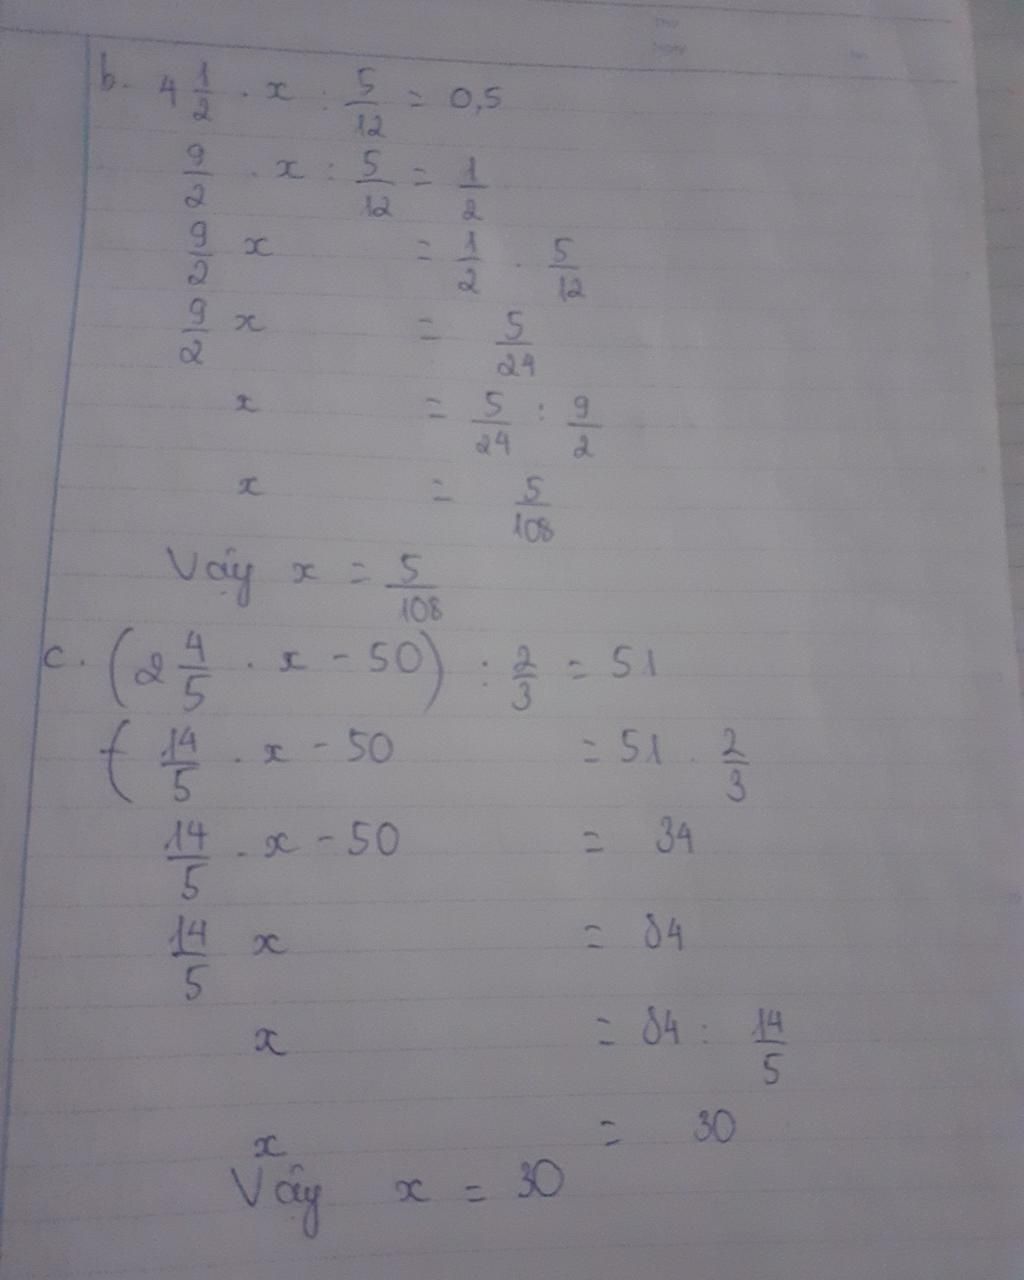 b. 4 1/2 . x : 5/12 = 0,5
9/2 . x : 5/12 = 1/2
9/2 x = 1/2 . 5/12
9/2 x = 5/24
x = 5/24 : 9/2
x = 5/108
Vậy x = 5/108
c. (2 4/5 . x - 50) : 2/3 = 51
( 14/5 . x - 50 = 51 . 2/3
14/5 . x - 50 = 34
14/5 x = 84
x = 84 : 14/5
x = 30
Vậy x = 30